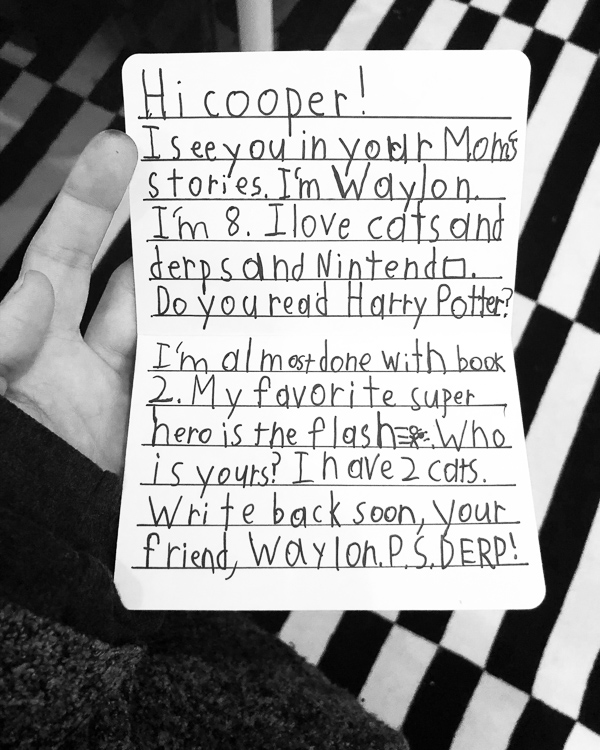 Hi cooper!
I see you in your Mom's
stories. I'm Waylon.
I'm 8. I love cats and
derps and Nintendo.
Do you read Harry Potter?
I'm almost done with book
2. My favorite super
hero is the flash. Who
is yours? I have 2 cats.
Write back soon, your
friend, Waylon. P.S. DERP!